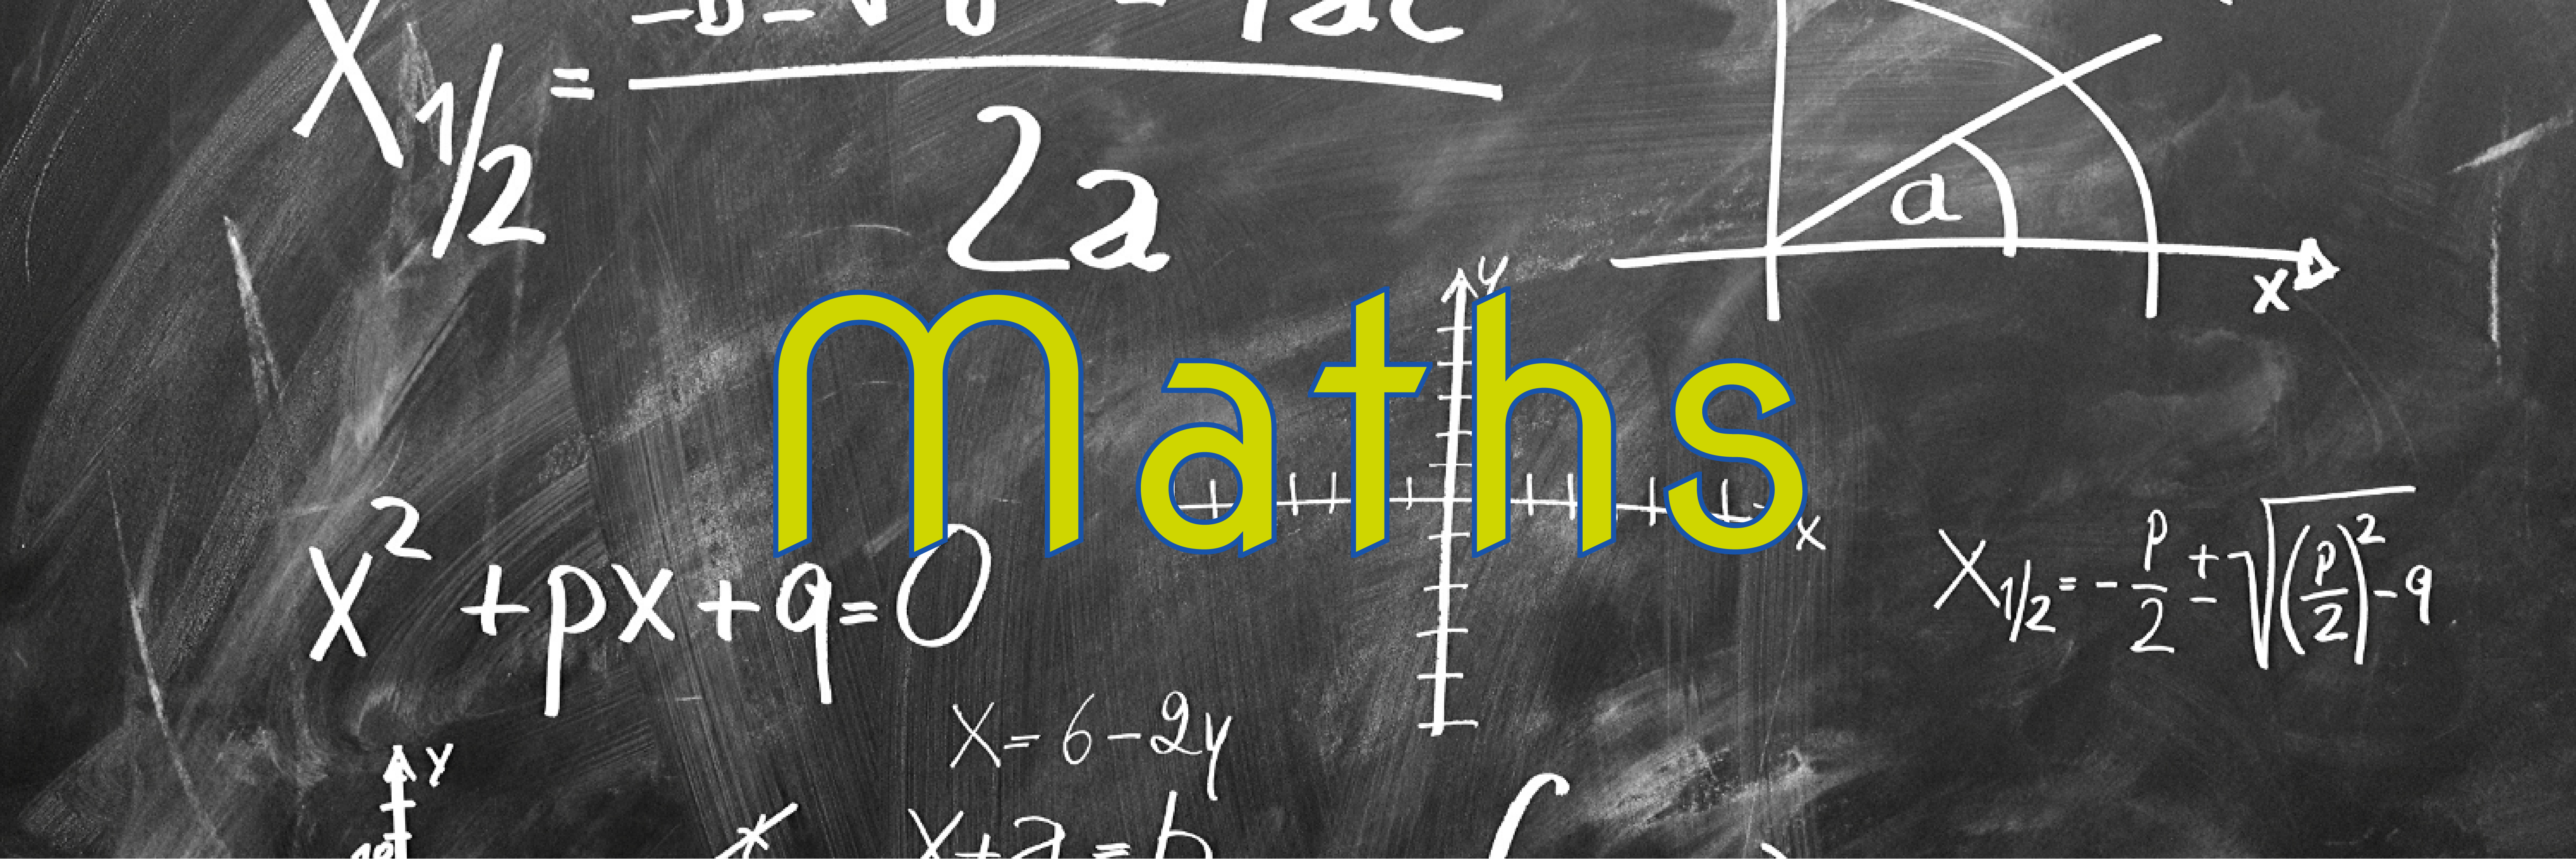 X1/2 =
2a
a
x
y
Maths
x
x² + px + q = 0
X1/2 = - p/2 ± √(p/2)² - q
x = 6 - 2y
y
x + a = b